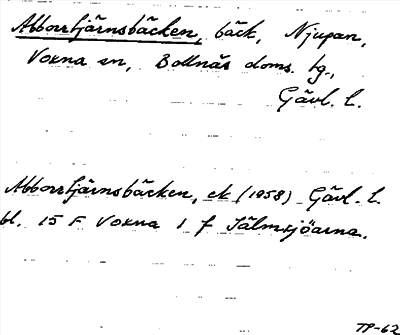 Abborrtjärnsbäcken, bäck, Njupan,
Voxna sn, Bollnäs doms. tg.,
Gävl. l.
Abborrtjärnsbäcken, ek (1958) Gävl. l.
bl. 15 F Voxna 1 f Tälmsjöarna.
TP-62